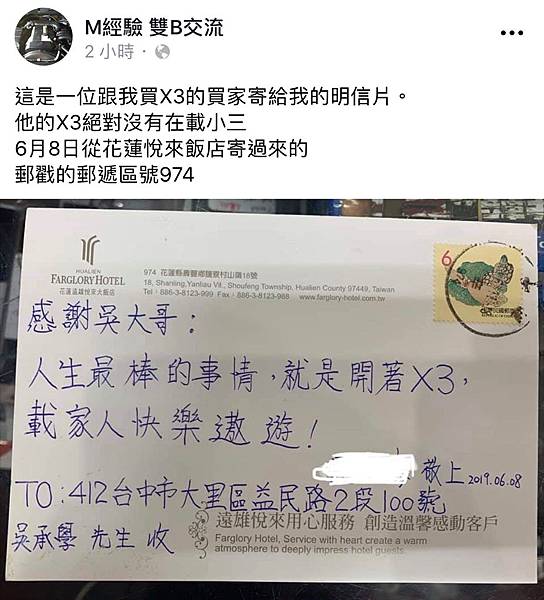 M經驗 雙B交流
2 小時
這是一位跟我買X3的買家寄給我的明信片。
他的X3絕對沒有在載小三
6月8日從花蓮悅來飯店寄過來的
郵戳的郵遞區號974
HUALIEN
FARGLORY HOTEL
花蓮遠雄悅來大飯店
974 花蓮縣壽豐鄉鹽寮村山嶺18號
18, Shanling,Yanliau Vil., Shoufeng Township, Hualien County 97449, Taiwan
Tel : 886-3-8123-999 Fax : 886-3-8123-988 www.farglory-hotel.com.tw
6
感謝吳大哥:
人生最棒的事情,就是開著X3,
載家人快樂遨遊!
敬上 2019.06.08
TO:412台中市大里區益民路2段100號
吳承學 先生 收
遠雄悅來用心服務 創造溫馨感動客戶
Farglory Hotel, Service with heart create a warm
atmosphere to deeply impress hotel guests.